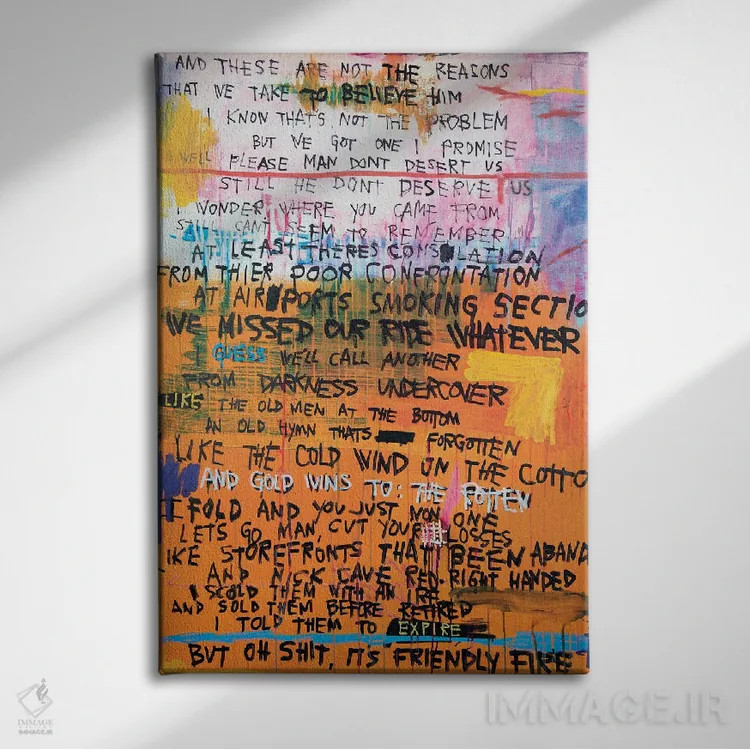 AND THESE ARE NOT THE REASONS
THAT WE TAKE TO BELIEVE HIM
I KNOW THATS NOT THE PROBLEM
BUT WE GOT ONE I PROMISE
WELL PLEASE MAN DONT DESERT US
STILL HE DONT DESERVE US
I WONDER WHERE YOU CAME FROM
STILL CANT SEEM TO REMEMBER
AT LEAST THERES CONSOLATION
FROM THIER POOR CONFRONTATION
AT AIRPORTS SMOKING SECTIO
WE MISSED OUR RIDE WHATEVER
I GUESS WE'LL CALL ANOTHER
FROM DARKNESS UNDERCOVER
LIKE THE OLD MEN AT THE BOTTOM
AN OLD HYMN THATS FORGOTTEN
LIKE THE COLD WIND ON THE COTTO
AND GOLD WINS TO: THE ROTTEN
I FOLD AND YOU JUST WON ONE
LETS GO MAN, CUT YOUR LOSSES
IKE STOREFRONTS THAT BEEN ABAND
AND NICK CAVE RED. RIGHT HANDED
I SCOLD THEM WITH AN IRE
AND SOLD THEM BEFORE RETIRED
I TOLD THEM TO EXPIRE
BUT OH SHIT, ITS FRIENDLY FIRE
IMMAGE
IMMAGE.IR
IMMAGE.IR